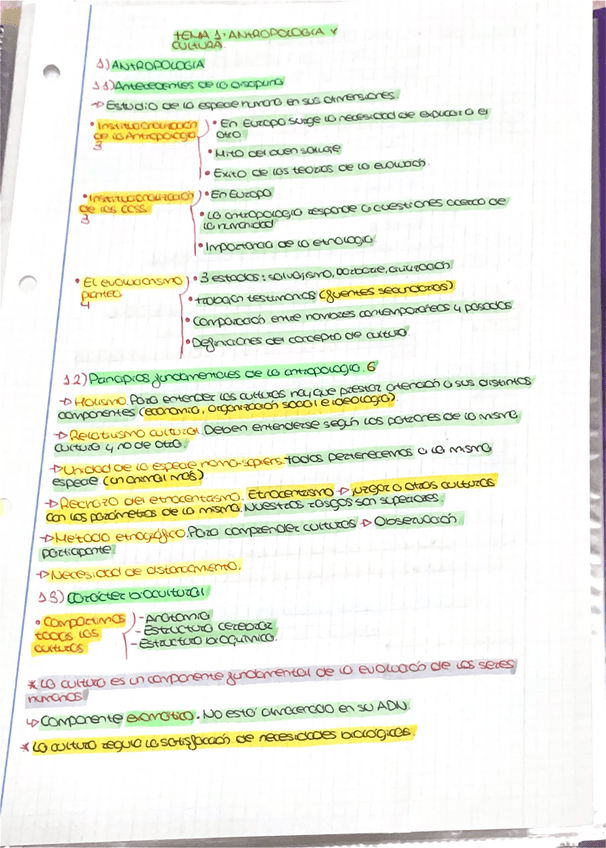 TEMA 1: ANTROPOLOGÍA Y
CULTURA.
1) ANTROPOLOGÍA
1.1) Antecedentes de la disciplina
→ Estudio de la especie humana en sus dimensiones.
• Institucionalización
de la Antropología
3
• En Europa surge la necesidad de explicar a el
otro
• Mito del buen salvaje
• Éxito de las teorías de la evolución.
• Institucionalización
de las CCSS.
3
• En Europa
• La antropología responde a cuestiones acerca de
la humanidad
• Importancia de la etnología
• El evolucionismo
planteó
4
• 3 estados: salvajismo, barbarie, civilización
• Trabajan testimonios (fuentes secundarias)
• Comparación entre hombres contemporáneos y pasados
• Definiciones del concepto de cultura.
1.2) Principios fundamentales de la antropología. 6
→ Holismo. Para entender las culturas hay que prestar atención a sus distintos
componentes (economía, organización social e ideología).
→ Relativismo cultural. Deben entenderse según los patrones de la misma
cultura y no de otra.
→ Unidad de la especie homo-sapiens. Todos pertenecemos a la misma
especie (un animal más)
→ Rechazo del etnocentrismo. Etnocentrismo → juzgar a otras culturas
con los parámetros de la misma. Nuestros rasgos son superiores.
→ Método etnográfico. Para comprender culturas → Observación
participante.
→ Necesidad de distanciamiento.
1.3) Carácter biocultural
• Compartimos
todas las
culturas
- Anatomía
- Estructura cerebral
- Estructura bioquímica.
* La cultura es un componente fundamental de la evolución de los seres
humanos.
↳ Componente exomático. No está almacenado en su ADN.
* La cultura regula la satisfacción de necesidades biológicas.